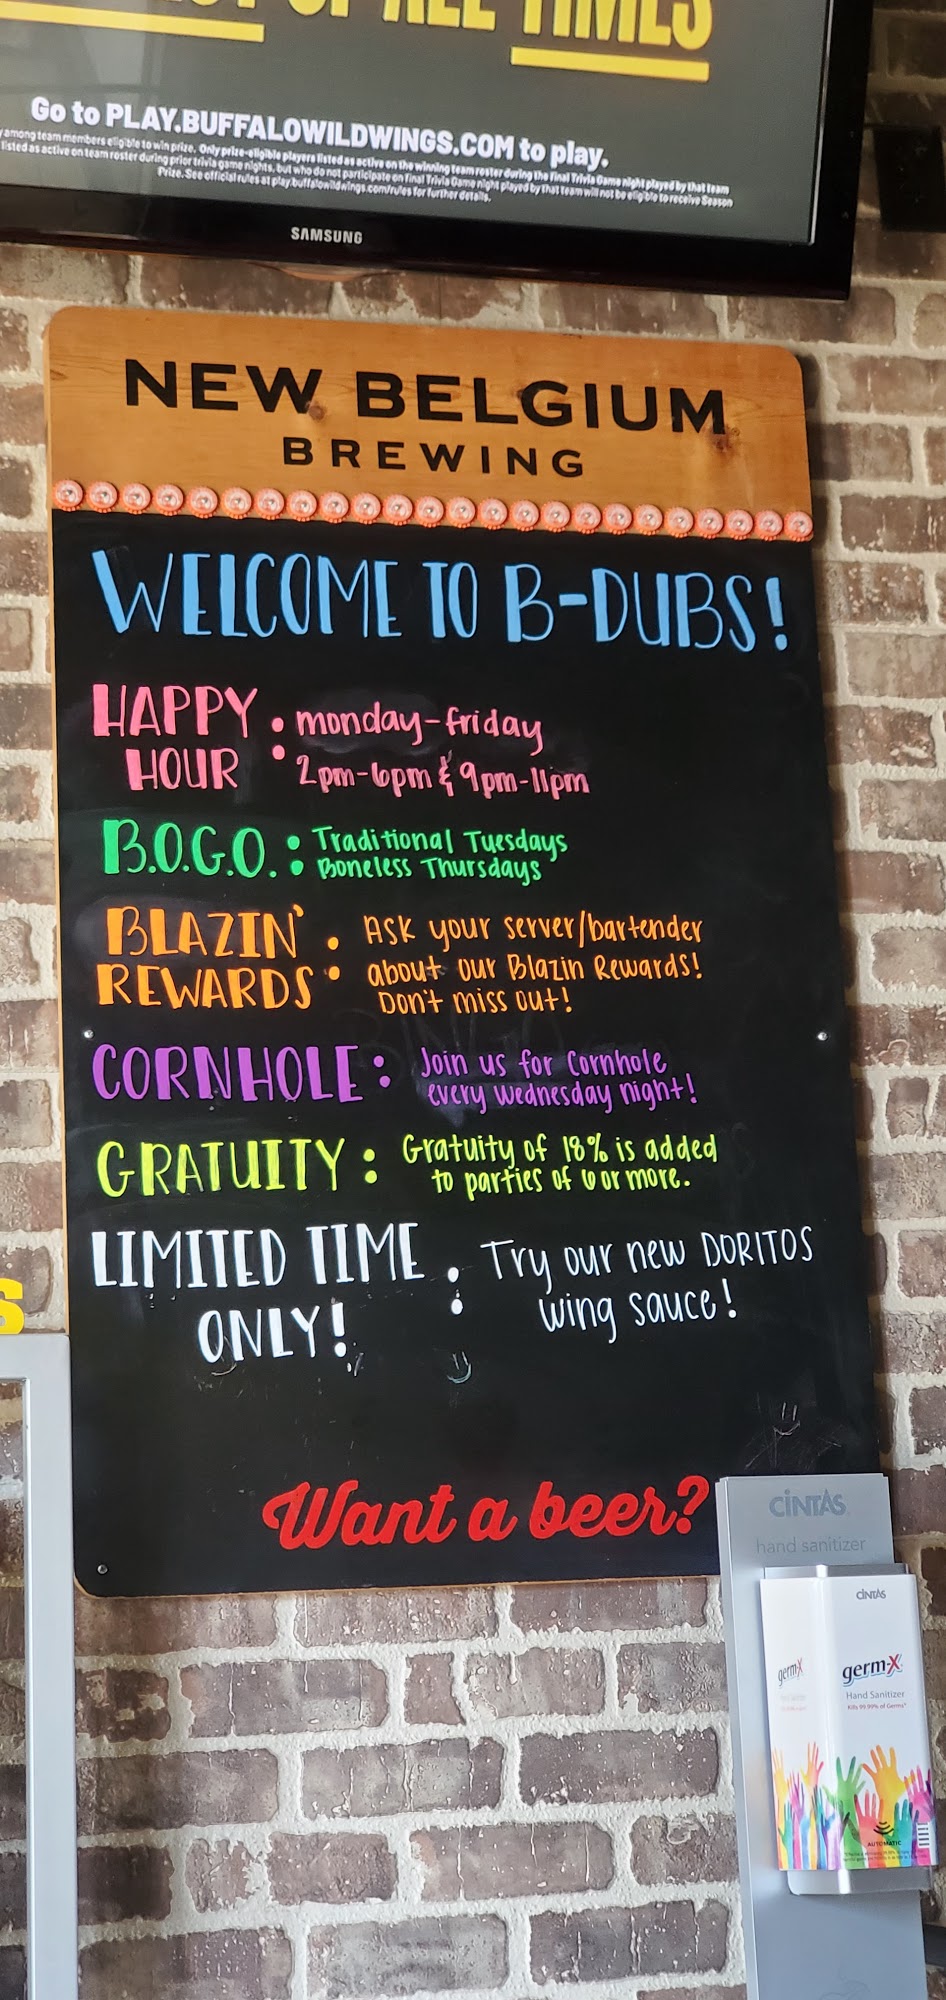 OF ALL TIMES
Go to PLAY.BUFFALOWILDWINGS.COM to play.
among team members eligible to win prize. Only prize-eligible players listed as active on the winning team roster during the Final Trivia Game night played by that team
listed as active on team roster during prior trivia game nights, but who do not participate on Final Trivia Game night played by that team will not be eligible to receive Season
Prize. See official rules at play.buffalowildwings.com/rules for further details.
SAMSUNG
NEW BELGIUM
BREWING
WELCOME TO B-DUBS!
HAPPY HOUR : monday-friday
2pm-6pm & 9pm-11pm
B.O.G.O. : Traditional Tuesdays
Boneless Thursdays
BLAZIN' REWARDS : Ask your server/bartender
about our Blazin Rewards!
Don't miss out!
CORNHOLE : Join us for Cornhole
every Wednesday night!
GRATUITY : Gratuity of 18% is added
to parties of 6 or more.
LIMITED TIME ONLY! : Try our new DORITOS
wing sauce!
Want a beer?
S
CINTAS
hand sanitizer
CINTAS
germ-x
germ-x
Hand Sanitizer
Kills 99.99% of Germs*
AUTOMATIC